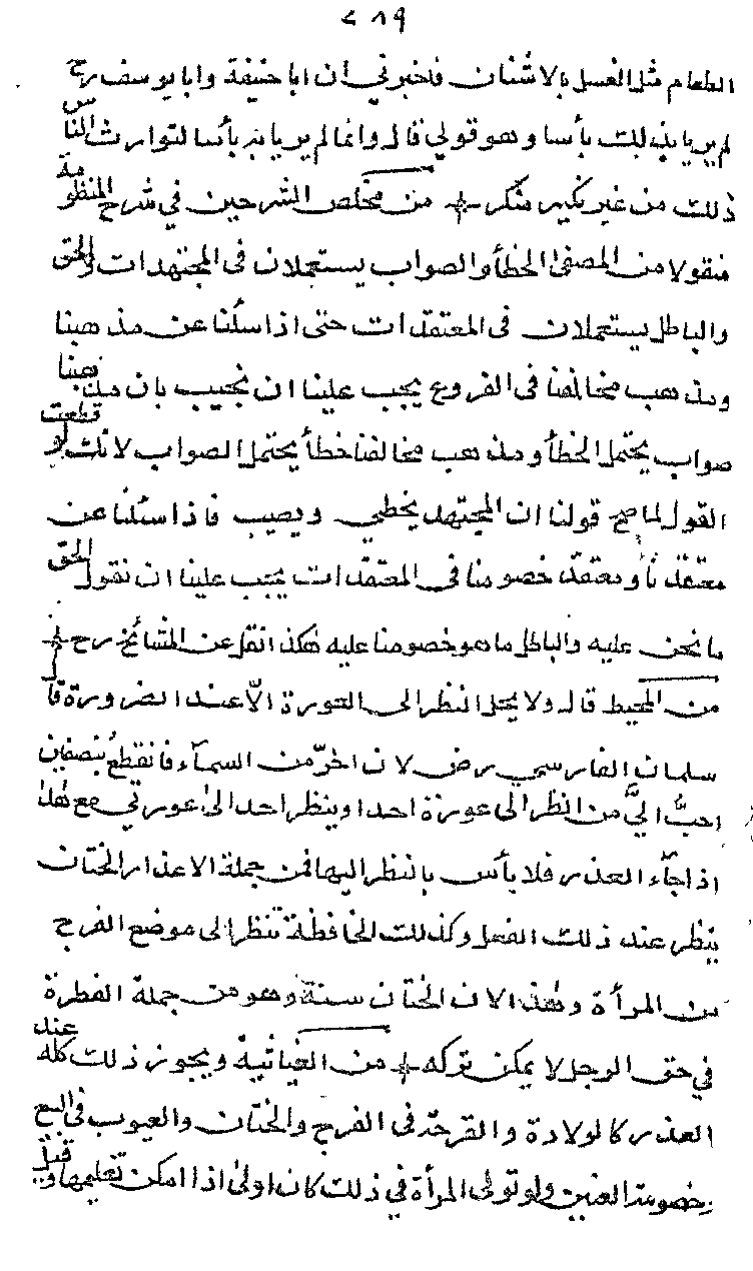 ٢٨٩
الطعام مثل الغسل بالاشنان فاخبرني ان ابا حنيفة وابا يوسف رح
لم يريا بذلك بأسا وهو قولي قال وانما لم يريا به بأسا لتوارث الناس
ذلك من غير نكير منكر + من مخلص الشرحين في شرح المنظومة
منقولا من المصفى الخطأ والصواب يستعملان فى المجتهدات والحق
والباطل يستعملان فى المعتقدات حتى اذا سئلنا عن مذهبنا
ومذهب مخالفنا فى الفروع يجب علينا ان نجيب بان مذهبنا
صواب يحتمل الخطأ ومذهب مخالفنا خطأ يحتمل الصواب لانك لو قطعت
القول لما صح قولنا ان المجتهد يخطي ويصيب فاذا سئلنا عن
معتقدنا ومعتقد خصومنا فى المعتقدات يجب علينا ان نقول الحق
ما نحن عليه والباطل ما هو خصومنا عليه هكذا نقل عن المشائخ رح +
من المحيط قال ولا يحل النظر الى العورة الّا عند الضرورة قال
سلمان الفارسي رض لان اخرّ من السمآء فانقطع بنصفين
احبُّ اليَّ من انظر الى عورة احد او ينظر احد الى عورتي مع هذا
اذا جآء العذر فلا بأس بالنظر اليها فمن جملة الاعذار الختان
ينظر عند ذلك الفعل وكذلك الخافظة تنظر الى موضع الفرج
من المرأة وهذا لان الختان سنة وهو من جملة الفطرة
في حق الرجل لا يمكن تركه + من الغياثية ويجوز ذلك كله عند
العذر كالولادة والقرحة فى الفرج والختان والعيوب فى البيع
وخصومة العنين ولو تولى المرأة في ذلك كان اولى اذا امكن تعليمها وقيل